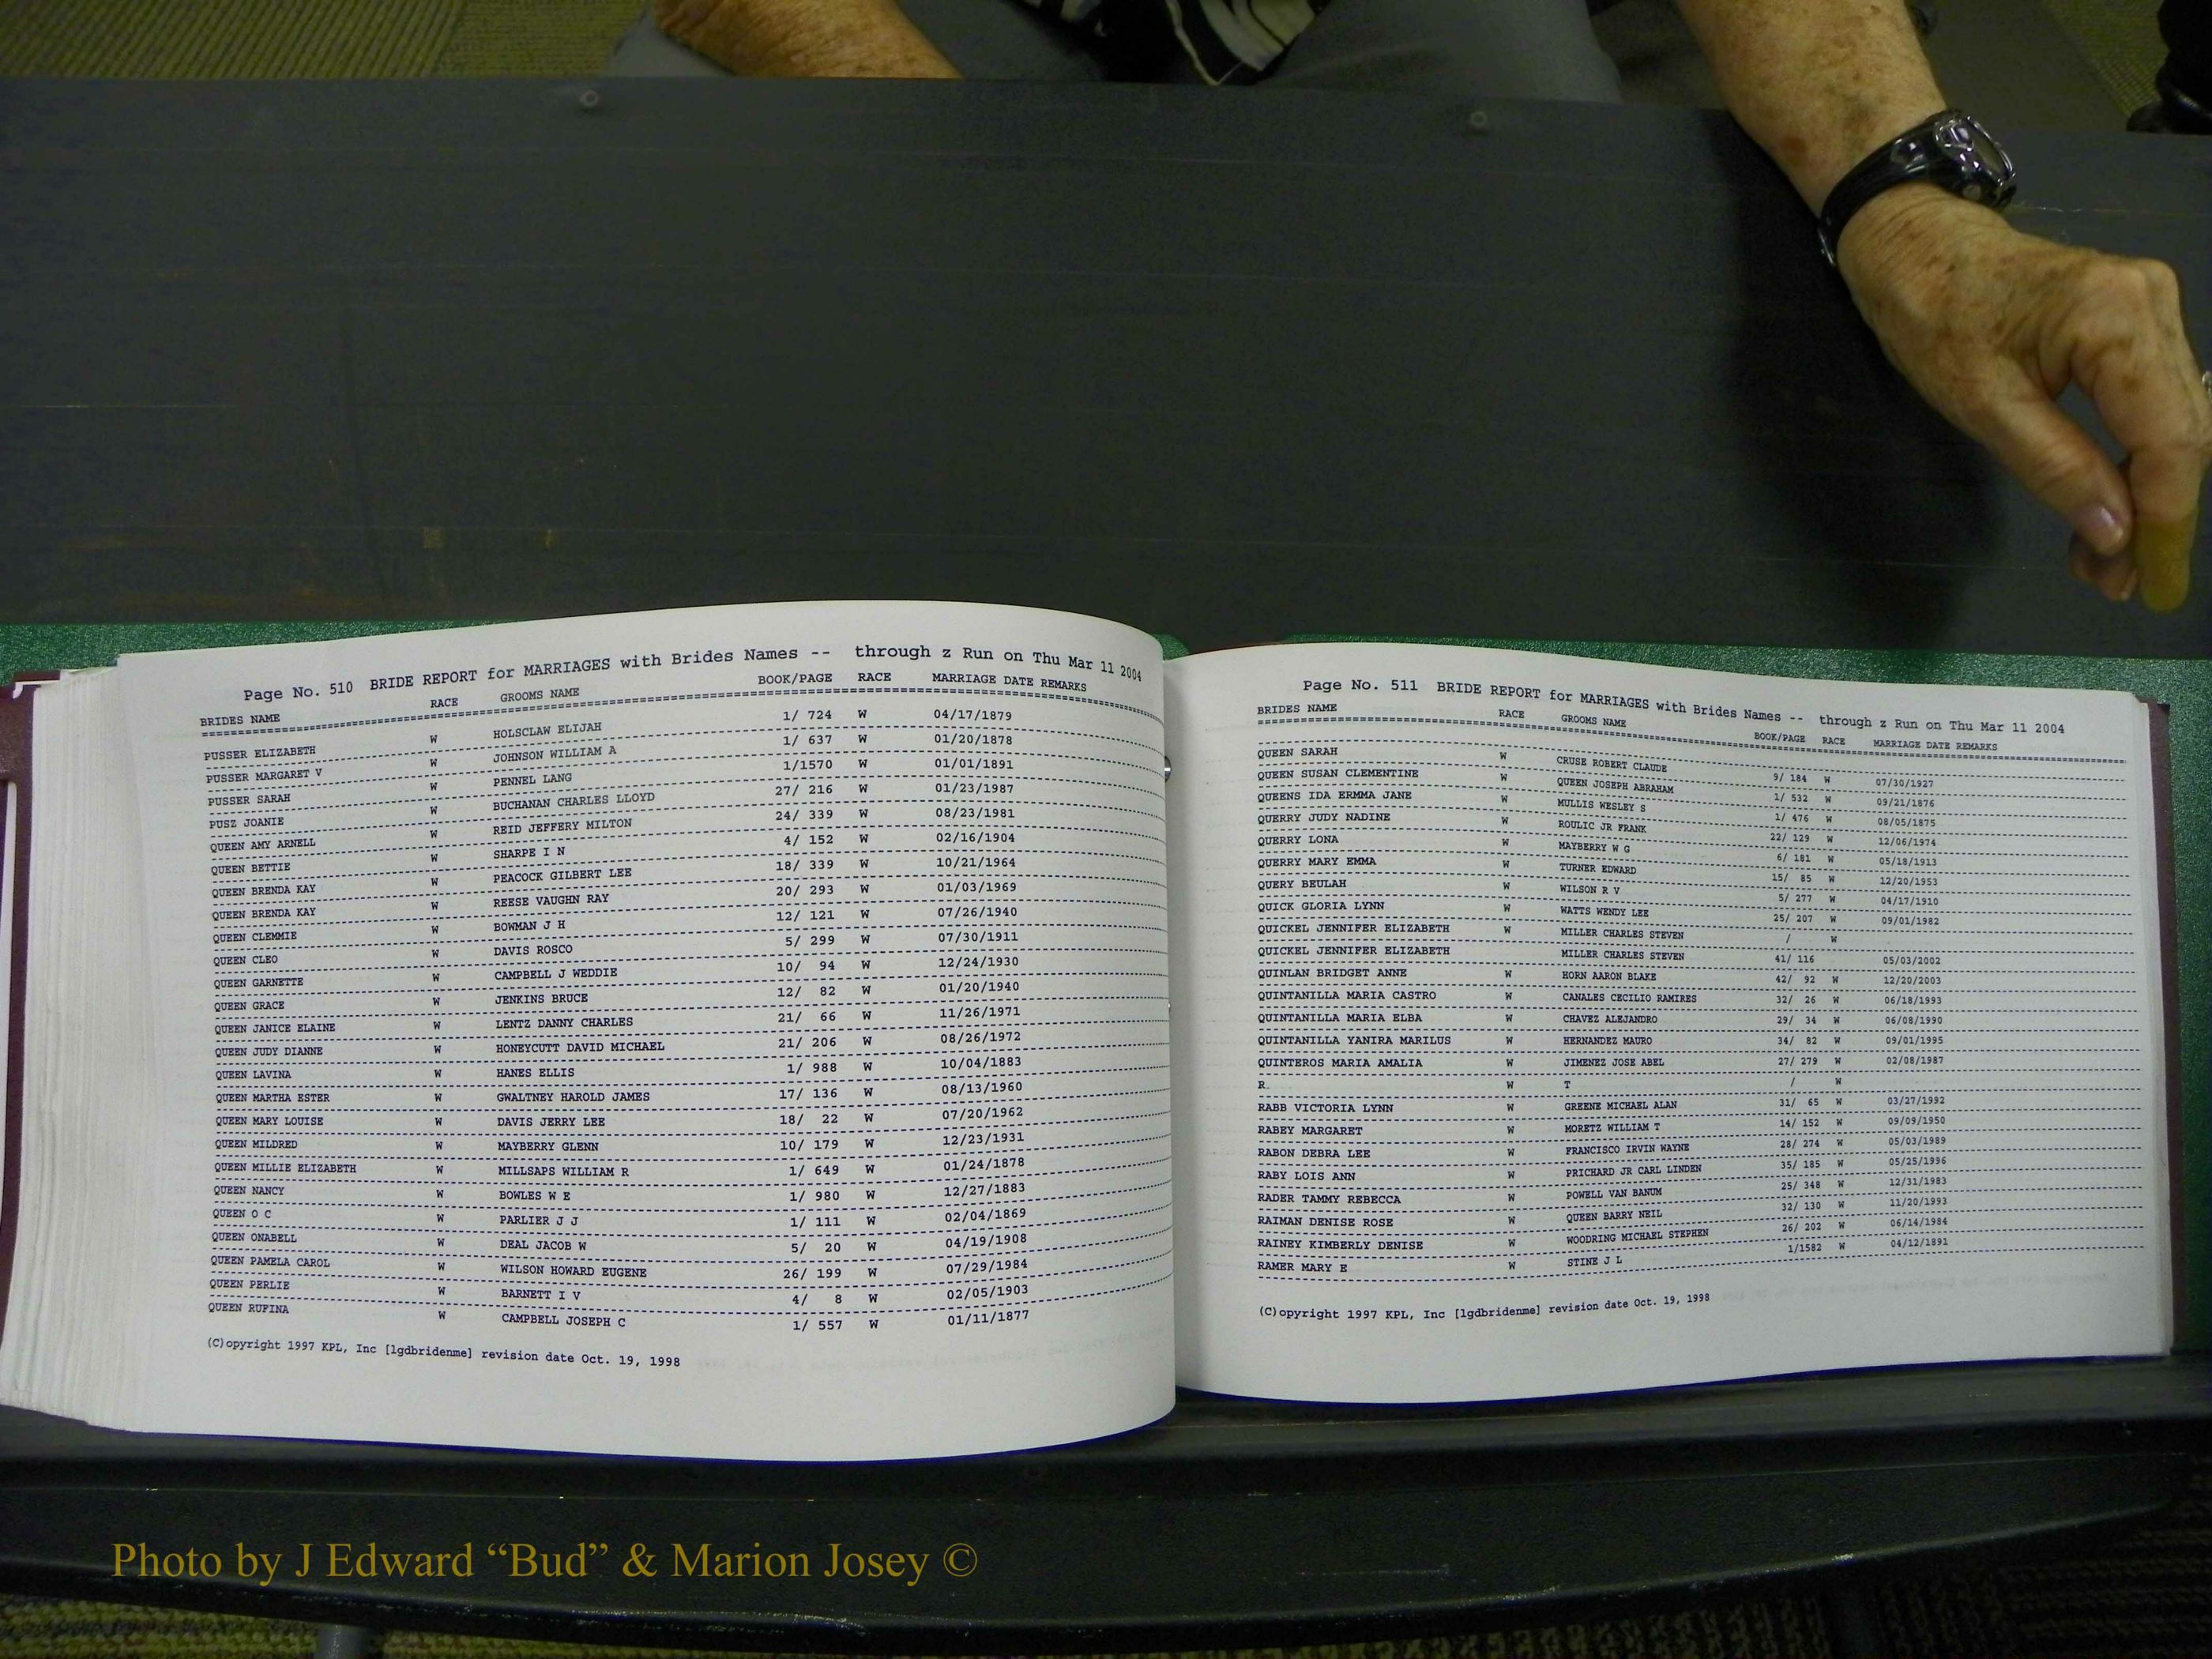 Page No. 510 BRIDE REPORT for MARRIAGES with Brides Names -- through z Run on Thu Mar 11 2004
BRIDES NAME RACE GROOMS NAME BOOK/PAGE RACE MARRIAGE DATE REMARKS
PUSSER ELIZABETH W HOLSCLAW ELIJAH 1/ 724 W 04/17/1879
PUSSER MARGARET V W JOHNSON WILLIAM A 1/ 637 W 01/20/1878
PUSSER SARAH W PENNEL LANG 1/1570 W 01/01/1891
PUSZ JOANIE W BUCHANAN CHARLES LLOYD 27/ 216 W 01/23/1987
QUEEN AMY ARNELL W REID JEFFERY MILTON 24/ 339 W 08/23/1981
QUEEN BETTIE W SHARPE I N 4/ 152 W 02/16/1904
QUEEN BRENDA KAY W PEACOCK GILBERT LEE 18/ 339 W 10/21/1964
QUEEN BRENDA KAY W REESE VAUGHN RAY 20/ 293 W 01/03/1969
QUEEN CLEMMIE W BOWMAN J H 12/ 121 W 07/26/1940
QUEEN CLEO W DAVIS ROSCO 5/ 299 W 07/30/1911
QUEEN GARNETTE W CAMPBELL J WEDDIE 10/ 94 W 12/24/1930
QUEEN GRACE W JENKINS BRUCE 12/ 82 W 01/20/1940
QUEEN JANICE ELAINE W LENTZ DANNY CHARLES 21/ 66 W 11/26/1971
QUEEN JUDY DIANNE W HONEYCUTT DAVID MICHAEL 21/ 206 W 08/26/1972
QUEEN LAVINA W HANES ELLIS 1/ 988 W 10/04/1883
QUEEN MARTHA ESTER W GWALTNEY HAROLD JAMES 17/ 136 W 08/13/1960
QUEEN MARY LOUISE W DAVIS JERRY LEE 18/ 22 W 07/20/1962
QUEEN MILDRED W MAYBERRY GLENN 10/ 179 W 12/23/1931
QUEEN MILLIE ELIZABETH W MILLSAPS WILLIAM R 1/ 649 W 01/24/1878
QUEEN NANCY W BOWLES W E 1/ 980 W 12/27/1883
QUEEN O C W PARLIER J J 1/ 111 W 02/04/1869
QUEEN ONABELL W DEAL JACOB W 5/ 20 W 04/19/1908
QUEEN PAMELA CAROL W WILSON HOWARD EUGENE 26/ 199 W 07/29/1984
QUEEN PERLIE W BARNETT I V 4/ 8 W 02/05/1903
QUEEN RUFINA W CAMPBELL JOSEPH C 1/ 557 W 01/11/1877
(C)opyright 1997 KPL, Inc [lgdbridenme] revision date Oct. 19, 1998
Page No. 511 BRIDE REPORT for MARRIAGES with Brides Names -- through z Run on Thu Mar 11 2004
BRIDES NAME RACE GROOMS NAME BOOK/PAGE RACE MARRIAGE DATE REMARKS
QUEEN SARAH W CRUSE ROBERT CLAUDE 9/ 184 W 07/30/1927
QUEEN SUSAN CLEMENTINE W QUEEN JOSEPH ABRAHAM 1/ 532 W 09/21/1876
QUEENS IDA ERMMA JANE W MULLIS WESLEY S 1/ 476 W 08/05/1875
QUERRY JUDY NADINE W ROULIC JR FRANK 22/ 129 W 12/06/1974
QUERRY LONA W MAYBERRY W G 6/ 181 W 05/18/1913
QUERRY MARY EMMA W TURNER EDWARD 15/ 85 W 12/20/1953
QUERY BEULAH W WILSON R V 5/ 277 W 04/17/1910
QUICK GLORIA LYNN W WATTS WENDY LEE 25/ 207 W 09/01/1982
QUICKEL JENNIFER ELIZABETH W MILLER CHARLES STEVEN / W
QUICKEL JENNIFER ELIZABETH MILLER CHARLES STEVEN 41/ 116 05/03/2002
QUINLAN BRIDGET ANNE W HORN AARON BLAKE 42/ 92 W 12/20/2003
QUINTANILLA MARIA CASTRO W CANALES CECILIO RAMIRES 32/ 26 W 06/18/1993
QUINTANILLA MARIA ELBA W CHAVEZ ALEJANDRO 29/ 34 W 06/08/1990
QUINTANILLA YANIRA MARILUS W HERNANDEZ MAURO 34/ 82 W 09/01/1995
QUINTEROS MARIA AMALIA W JIMENEZ JOSE ABEL 27/ 279 W 02/08/1987
R. W T / W
RABB VICTORIA LYNN W GREENE MICHAEL ALAN 31/ 65 W 03/27/1992
RABEY MARGARET W MORETZ WILLIAM T 14/ 152 W 09/09/1950
RABON DEBRA LEE W FRANCISCO IRVIN WAYNE 28/ 274 W 05/03/1989
RABY LOIS ANN W PRICHARD JR CARL LINDEN 35/ 185 W 05/25/1996
RADER TAMMY REBECCA W POWELL VAN BANUM 25/ 348 W 12/31/1983
RAIMAN DENISE ROSE W QUEEN BARRY NEIL 32/ 130 W 11/20/1993
RAINEY KIMBERLY DENISE W WOODRING MICHAEL STEPHEN 26/ 202 W 06/14/1984
RAMER MARY E W STINE J L 1/1582 W 04/12/1891
(C)opyright 1997 KPL, Inc [lgdbridenme] revision date Oct. 19, 1998
Photo by J Edward “Bud” & Marion Josey ©